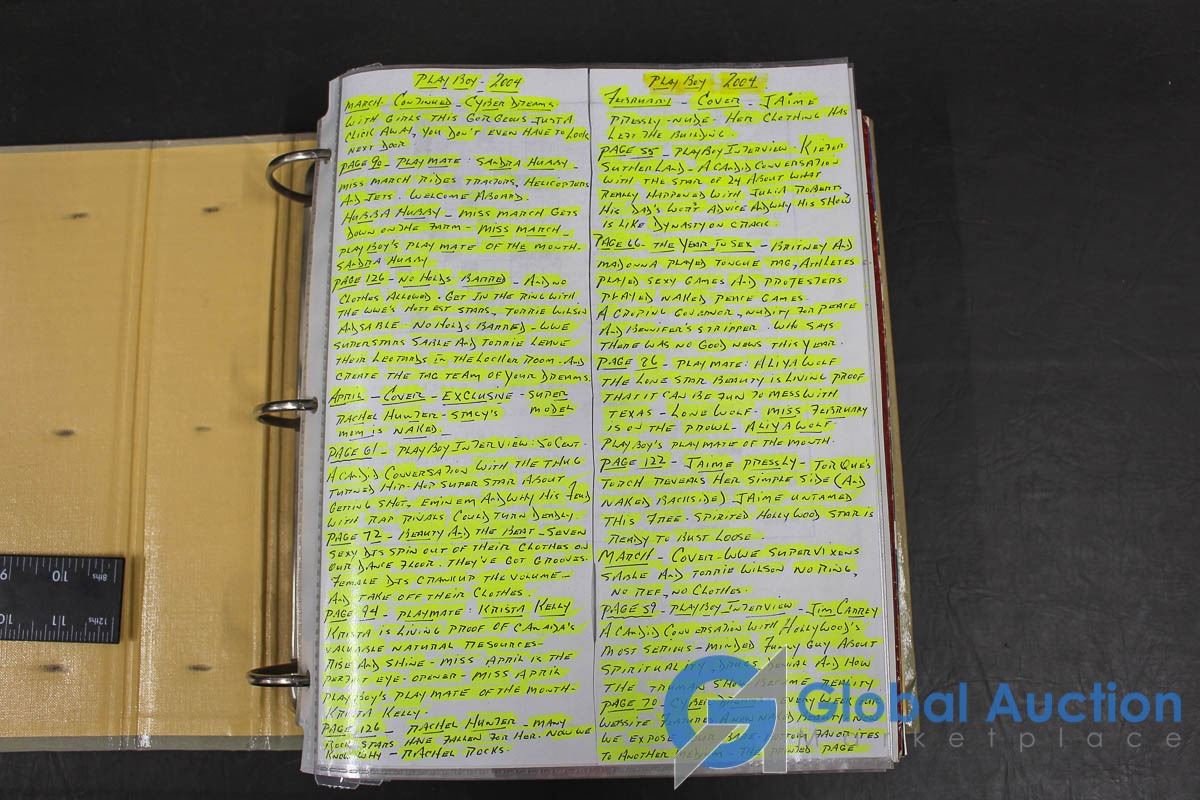 PLAYBOY - 2004
MARCH - CONTINUED - CYBER DREAMS
WITH GIRLS THIS GORGEOUS JUST A
CLICK AWAY, YOU DON'T EVEN HAVE TO LOOK
NEXT DOOR.
PAGE 90 - PLAYMATE: SANDRA HUBBY -
MISS MARCH RIDES TRACTORS, HELICOPTERS
AND JETS. WELCOME ABOARD.
HUBBA HUBBY - MISS MARCH GETS
DOWN ON THE FARM - MISS MARCH -
PLAYBOY'S PLAYMATE OF THE MONTH -
SANDRA HUBBY
PAGE 126 - NO HOLDS BARRED - AND NO
CLOTHES ALLOWED. GET IN THE RING WITH
THE WWE'S HOTTEST STARS, TORRIE WILSON
AND SABLE - NO HOLDS BARRED - WWE
SUPERSTARS SABLE AND TORRIE LEAVE
THEIR LEOTARDS IN THE LOCKER ROOM - AND
CREATE THE TAG TEAM OF YOUR DREAMS.
APRIL - COVER - EXCLUSIVE - SUPER
RACHEL HUNTER - STACY'S MODEL
MOM IS NAKED -
PAGE 61 - PLAYBOY INTERVIEW: 50 CENT -
A CANDID CONVERSATION WITH THE THUG
TURNED HIP-HOP SUPERSTAR ABOUT
GETTING SHOT, EMINEM AND WHY HIS FEUD
WITH RAP RIVALS COULD TURN DEADLY -
PAGE 72 - BEAUTY AND THE BEAT - SEVEN
SEXY DJS SPIN OUT OF THEIR CLOTHES ON
OUR DANCE FLOOR. THEY'VE GOT GROOVES.
FEMALE DJS CRANK UP THE VOLUME -
AND TAKE OFF THEIR CLOTHES.
PAGE 94 - PLAYMATE: KRISTA KELLY
KRISTA IS LIVING PROOF OF CANADA'S
VALUABLE NATURAL RESOURCES -
RISE AND SHINE - MISS APRIL IS THE
PERFECT EYE-OPENER - MISS APRIL
PLAYBOY'S PLAYMATE OF THE MONTH -
KRISTA KELLY.
PAGE 126 - RACHEL HUNTER - MANY
ROCK STARS HAVE FALLEN FOR HER. NOW WE
KNOW WHY - RACHEL ROCKS -
PLAYBOY - 2004
FEBRUARY - COVER - JAIME
PRESSLY - NUDE - HER CLOTHING HAS
LEFT THE BUILDING.
PAGE 55 - PLAYBOY INTERVIEW: KIEFER
SUTHERLAND - A CANDID CONVERSATION
WITH THE STAR OF 24 ABOUT WHAT
REALLY HAPPENED WITH JULIA ROBERTS
HIS DAD'S WORST ADVICE AND WHY HIS SHOW
IS LIKE DYNASTY ON CRACK.
PAGE 66 - THE YEAR IN SEX - BRITNEY AND
MADONNA PLAYED TONGUE TAG, ATHLETES
PLAYED SEXY GAMES AND PROTESTERS
PLAYED NAKED PEACE GAMES.
A GROPING GOVERNOR, NUDITY FOR PEACE
AND BENNIFER'S STRIPPER. WHO SAYS
THERE WAS NO GOOD NEWS THIS YEAR.
PAGE 86 - PLAYMATE: ALIYA WOLF
THE LONE STAR BEAUTY IS LIVING PROOF
THAT IT CAN BE FUN TO MESS WITH
TEXAS - LONE WOLF - MISS FEBRUARY
IS ON THE PROWL - ALIYA WOLF
PLAYBOY'S PLAYMATE OF THE MONTH.
PAGE 122 - JAIME PRESSLY - TORQUE'S
TORCH REVEALS HER SIMPLE SIDE (AND
NAKED BACKSIDE) JAIME UNTAMED
THIS FREE-SPIRITED HOLLYWOOD STAR IS
READY TO BUST LOOSE -
MARCH - COVER - WWE SUPERVIXENS
SABLE AND TORRIE WILSON NO RING,
NO REF, NO CLOTHES.
PAGE 59 - PLAYBOY INTERVIEW - JIM CARREY
A CANDID CONVERSATION WITH HOLLYWOOD'S
MOST SERIOUS-MINDED FUNNY GUY ABOUT
SPIRITUALITY, DRUGS, DENIAL AND HOW
THE TRUMAN SHOW BECAME REALITY
PAGE 70 - CYBER EVERY WEEK OUR
WEBSITE FEATURES A NEW NAKED BEAUTY. NOW
WE EXPOSE OUR FAVORITES
TO ANOTHER MEDIUM - THE PRINTED PAGE
Global Auction
Marketplace
9 10 8ths
10 11 12ths